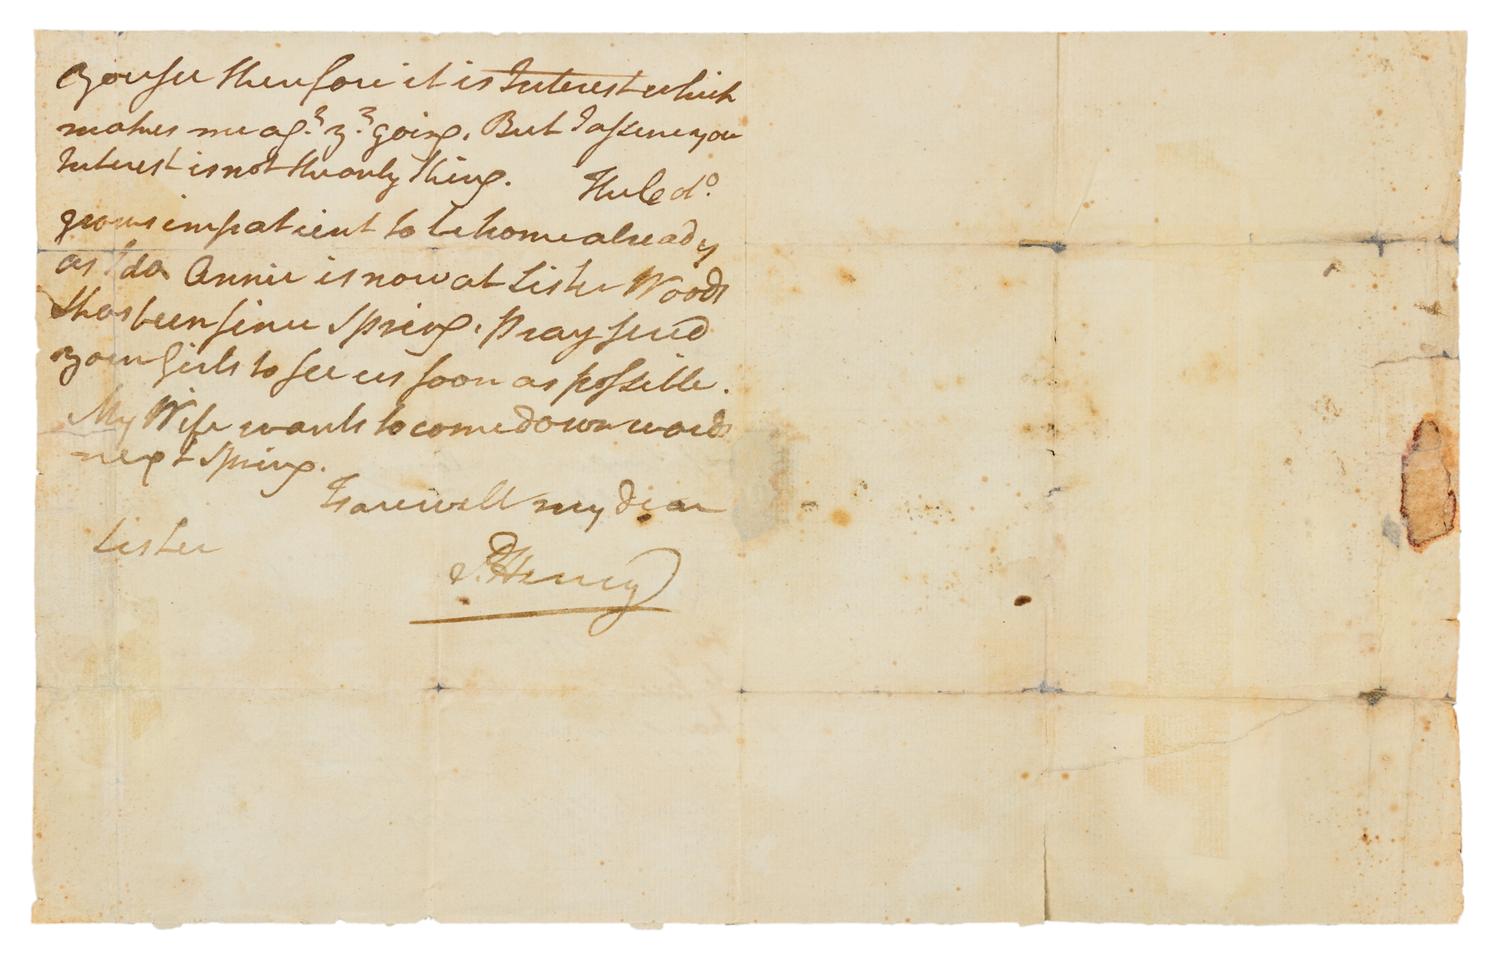 you see therefore it is Interest which
makes me agt. yr. going. But I assure you
Interest is not the only thing. The Cdo.
grows impatient to be home already
as I do. Annie is now at Sister Woods
& has been since Spring. Pray send
your Girls to see us soon as possible.
My Wife wants to come downwards
next Spring.
Farewell my dear
Sister
P. Henry